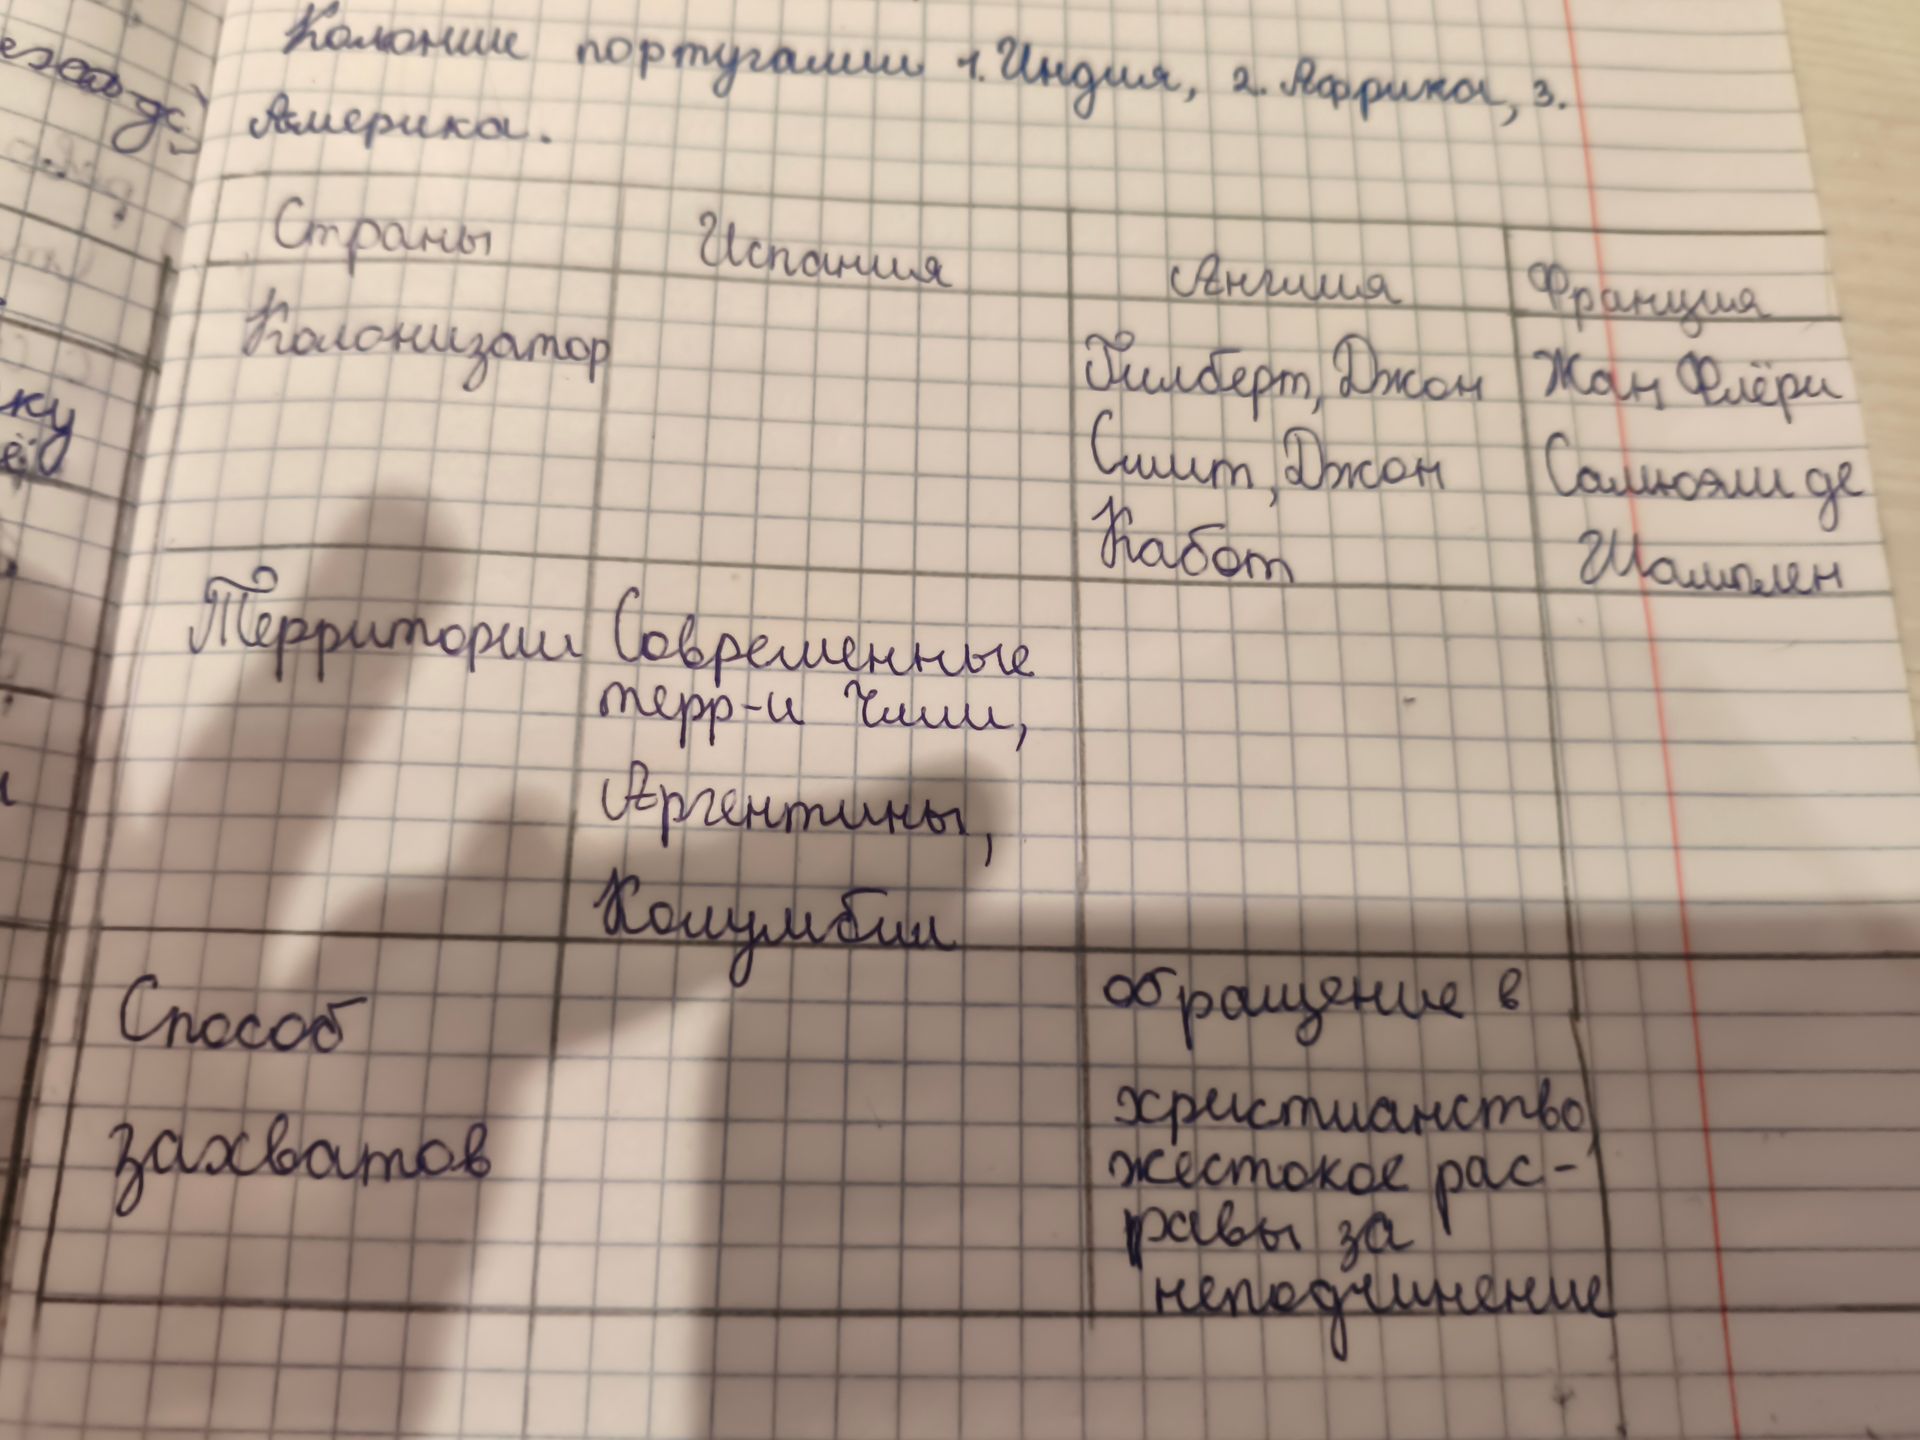 Колонии португалии 1. Индия, 2. Африка, 3.
Америка.
Страны Испания Англия Франция
Колонизатор
Гилберт, Джон
Смит, Джон
Кабот
Жан Флёри
Самюэли де
Шамплен
Территории
Современные
терр-и Чили,
Аргентины,
Колумбии
Способ
захватов
обращение в
христианство,
жестокое рас-
равы за
неподчинение
ку